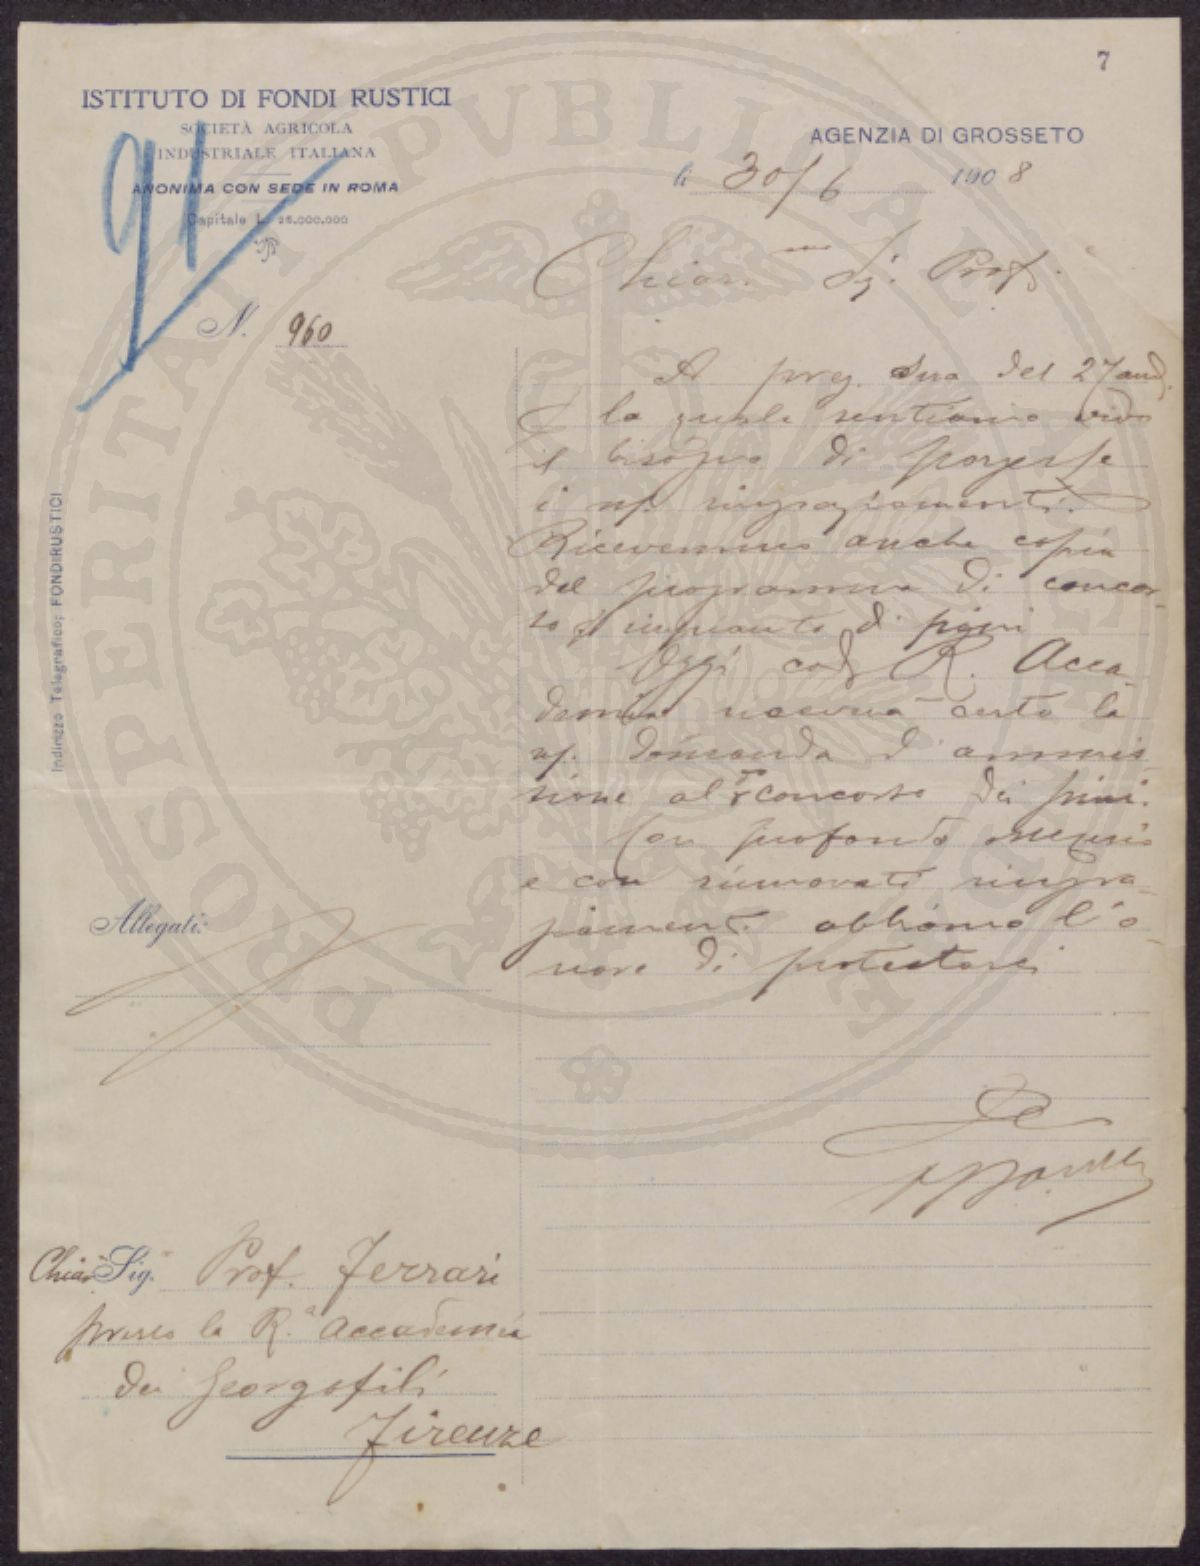 7
ISTITUTO DI FONDI RUSTICI
SOCIETÀ AGRICOLA
INDUSTRIALE ITALIANA
ANONIMA CON SEDE IN ROMA
Capitale L. 25.000.000
91
N. 960
Indirizzo Telegrafico: FONDIRUSTICI
AGENZIA DI GROSSETO
li 30/6 1908
Chiar.mo Sig. Prof.
A preg. Sua del 27 and.
la quale sentiamo vivo
il bisogno di porgerle
i ns. ringraziamenti.
Ricevemmo anche copia
del programma di concor-
so p impianto di pini
Oggi cod. R. Acca-
demia riceverà certo la
ns. domanda d'ammis-
sione al concorso dei pini.
Con profondo ossequio
e con rinnovati ringra-
ziamenti abbiamo l'o-
nore di protestarci
Allegati:
Chiar. Sig. Prof. Ferrari
presso la R.a Accademia
dei Georgofili
Firenze
PROSPERITATI PVBLICAE AVGENDAE